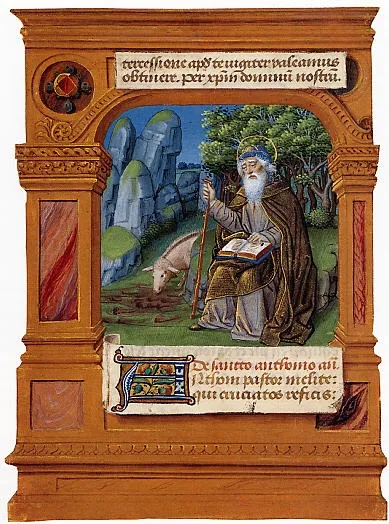 terressione apd te iugiter valeamus
obtinere. Per xpm dominū nostrū.
De sancto anthonio añ.
Anthoni pastor inclite:
qui cruciatos reficis: